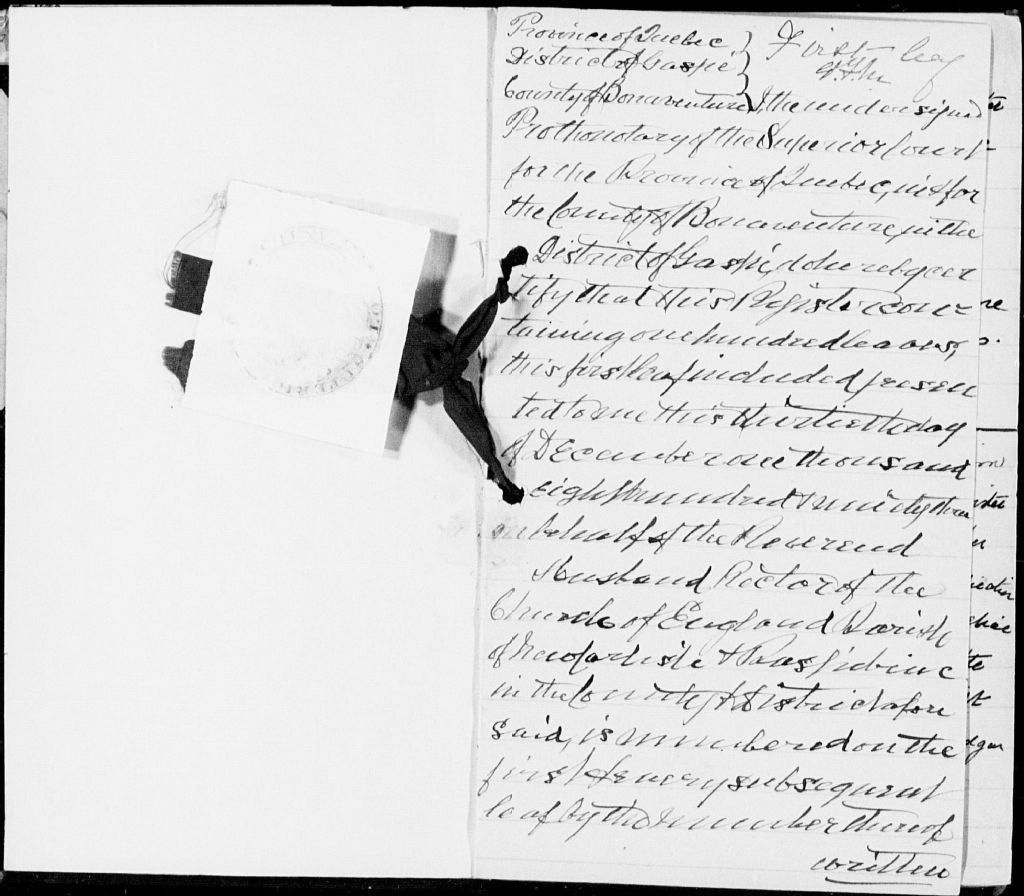 Province of Quebec } First leaf
District of Gaspé }
County of Bonaventure } I, the undersigned
Prothonotary of the Superior Court
for the Province of Quebec, in & for
the County of Bonaventure, in the
District of Gaspé, do hereby cer
tify that this Register con-
taining one hundred leaves,
this first leaf included presen
ted to me this thirtieth day
of December one thousand
eight hundred & ninety three
on behalf of the Reverend
Husband Rector of the
Church of England Parish
of New Carlisle & Paspebiac
in the County & District afore
said, is numbered on the
first & every subsequent
leaf by the number thereof
written